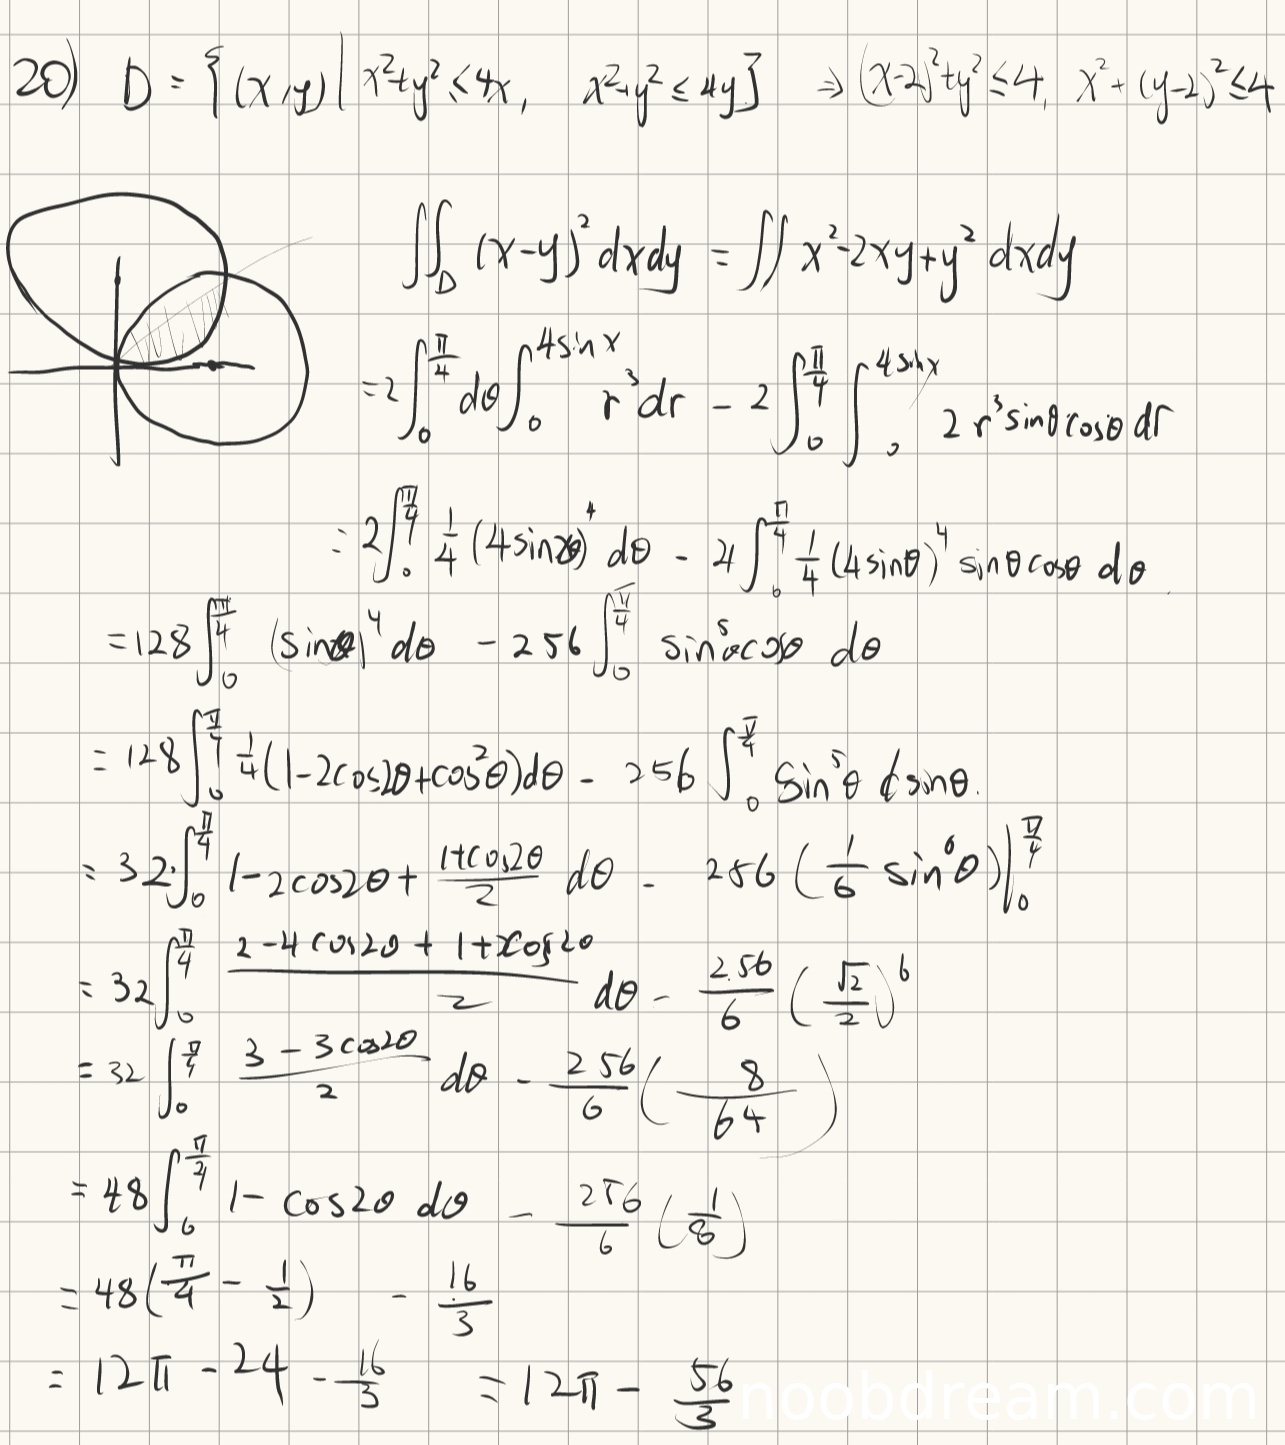 20) D = {(x,y) | x²+y² ≤ 4x, x²+y² ≤ 4y} ⇒ (x-2)²+y² ≤ 4, x²+(y-2)² ≤ 4
∬_D (x-y)² dxdy = ∬ x²-2xy+y² dxdy
= 2∫_0^{π/4} dθ ∫_0^{4sin x} r³dr - 2∫_0^{π/4} ∫_0^{4sin x} 2r³sinθcosθ dr
= 2∫_0^{π/4} 1/4 (4sinθ)⁴ dθ - 4∫_0^{π/4} 1/4 (4sinθ)⁴ sinθcosθ dθ
= 128∫_0^{π/4} (sinθ)⁴ dθ - 256∫_0^{π/4} sin⁵θcosθ dθ
= 128∫_0^{π/4} 1/4 (1-2cos2θ+cos²θ)dθ - 256∫_0^{π/4} sin⁵θ dsinθ.
= 32·∫_0^{π/4} 1-2cos2θ + (1+cos2θ)/2 dθ - 256 (1/6 sin⁶θ)|_0^{π/4}
= 32∫_0^{π/4} (2-4cos2θ+1+cos2θ)/2 dθ - 256/6 (√2/2)⁶
= 32∫_0^{π/4} (3-3cos2θ)/2 dθ - 256/6 (8/64)
= 48∫_0^{π/4} 1-cos2θ dθ - 256/6 (1/8)
= 48(π/4 - 1/2) - 16/3
= 12π - 24 - 16/3 = 12π - 56/3
noobdream.com